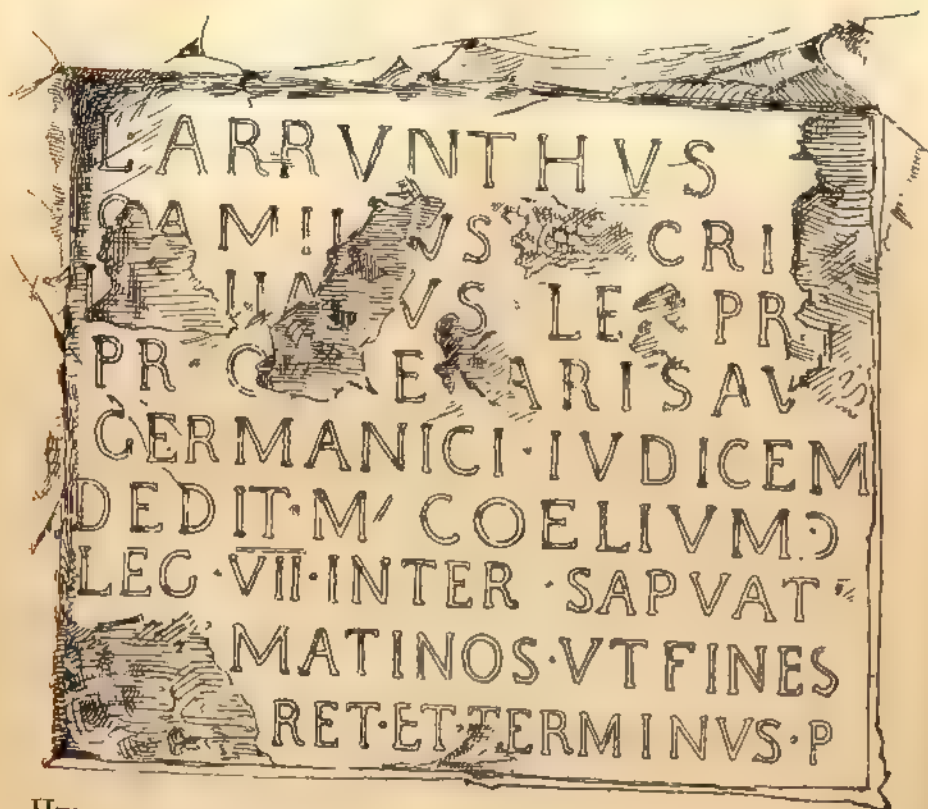 LARRVNTHVS
CRI
VS · PR
PR · ARIS AV
GERMANICI · IVDICEM
DEDIT · M' COELIVM · Ɔ
LEG · VII · INTER · SAPVAT
MATINOS · VT FINES
RET · ET · TERMINVS · P